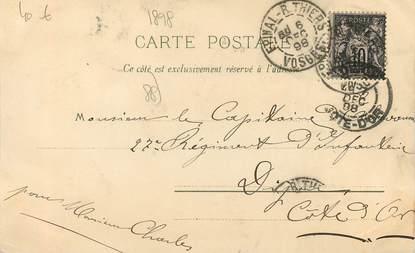 10 €
1898
CARTE POSTALE
Ce côté est exclusivement réservé à l'adresse
(88)
EPINAL-R. THIERS
6
DEC
98
VOSGES
POSTE
10
DEC
98
COTE-D'OR
Monsieur le Capitaine
27e Régiment d'Infanterie
Côte d'Or
pour Monsieur Charles